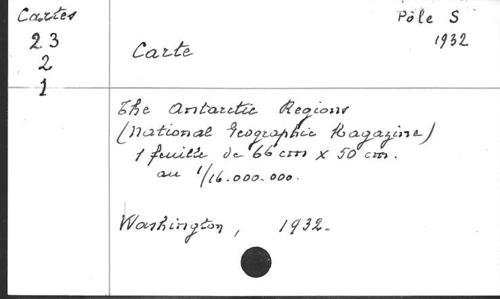 Cartes
23
2
1
Pôle S
1932
Carte
The Antarctic Regions
(National Geographic Magazine)
1 feuille de 66 cm x 50 cm.
au 1/16.000.000.
Washington, 1932.